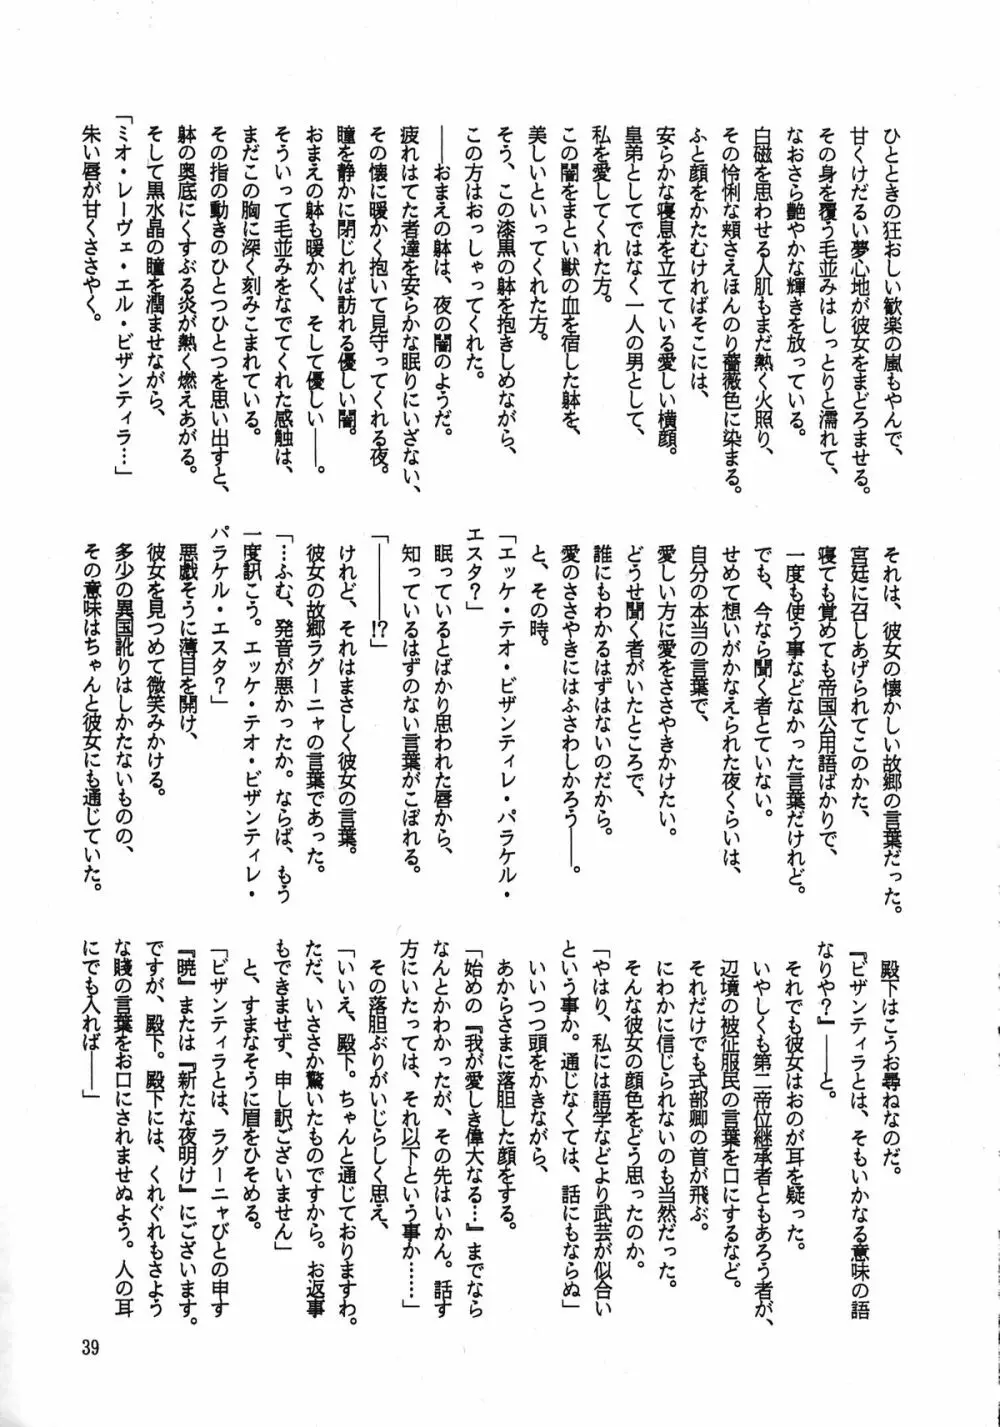 ひとときの狂おしい歓楽の嵐もやんで、
甘くけだるい夢心地が彼女をまどろませる。
その身を覆う毛並みはしっとりと濡れて、
なおさら艶やかな輝きを放っている。
白磁を思わせる人肌もまだ熱く火照り、
その怜悧な頬さえほんのり薔薇色に染まる。
ふと顔をかたむければそこには、
安らかな寝息を立てている愛しい横顔。
皇弟としてではなく一人の男として、
私を愛してくれた方。
この闇をまとい獣の血を宿した躰を、
美しいといってくれた方。
そう、この漆黒の躰を抱きしめながら、
この方はおっしゃってくれた。
――おまえの躰は、夜の闇のようだ。
疲れはてた者達を安らかな眠りにいざない、
その懐に暖かく抱いて見守ってくれる夜。
瞳を静かに閉じれば訪れる優しい闇。
おまえの躰も暖かく、そして優しい――。
そういって毛並みをなでてくれた感触は、
まだこの胸に深く刻みこまれている。
その指の動きのひとつひとつを思い出すと、
躰の奥底にくすぶる炎が熱く燃えあがる。
そして黒水晶の瞳を潤ませながら、
「ミオ・レーヴェ・エル・ビザンティラ…」
朱い唇が甘くささやく。
それは、彼女の懐かしい故郷の言葉だった。
宮廷に召しあげられてこのかた、
寝ても覚めても帝国公用語ばかりで、
一度も使う事などなかった言葉だけれど。
でも、今なら聞く者とていない。
せめて想いがかなえられた夜くらいは、
自分の本当の言葉で、
愛しい方に愛をささやきかけたい。
どうせ聞く者がいたところで、
誰にもわかるはずはないのだから。
愛のささやきにはふさわしかろう――。
と、その時。
「エッケ・テオ・ビザンティレ・パラケル・
エスタ？」
眠っているとばかり思われた唇から、
知っているはずのない言葉がこぼれる。
「――――!?」
けれど、それはまさしく彼女の言葉。
彼女の故郷ラグーニャの言葉であった。
「…ふむ、発音が悪かったか。ならば、もう
一度訊こう。エッケ・テオ・ビザンティレ・
パラケル・エスタ？」
悪戯そうに薄目を開け、
彼女を見つめて微笑みかける。
多少の異国訛りはしかたないものの、
その意味はちゃんと彼女にも通じていた。
殿下はこうお尋ねなのだ。
『ビザンティラとは、そもいかなる意味の語
なりや？』――と。
それでも彼女はおのが耳を疑った。
いやしくも第二帝位継承者ともあろう者が、
辺境の被征服民の言葉を口にするなど。
それだけでも式部卿の首が飛ぶ。
にわかに信じられないのも当然だった。
そんな彼女の顔色をどう思ったのか。
「やはり、私には語学などより武芸が似合い
という事か。通じなくては、話にもならぬ」
いいつつ頭をかきながら、
あからさまに落胆した顔をする。
「始めの『我が愛しき偉大なる…』までなら
なんとかわかったが、その先はいかん。話す
方にいたっては、それ以下という事か……」
その落胆ぶりがいじらしく思え、
「いいえ、殿下。ちゃんと通じておりますわ。
ただ、いささか驚いたものですから。お返事
もできませず、申し訳ございません」
と、すまなそうに眉をひそめる。
「ビザンティラとは、ラグーニャびとの申す
『暁』または『新たな夜明け』にございます。
ですが、殿下。殿下には、くれぐれもさよう
な賤の言葉をお口にされませぬよう。人の耳
にでも入れば――」
39